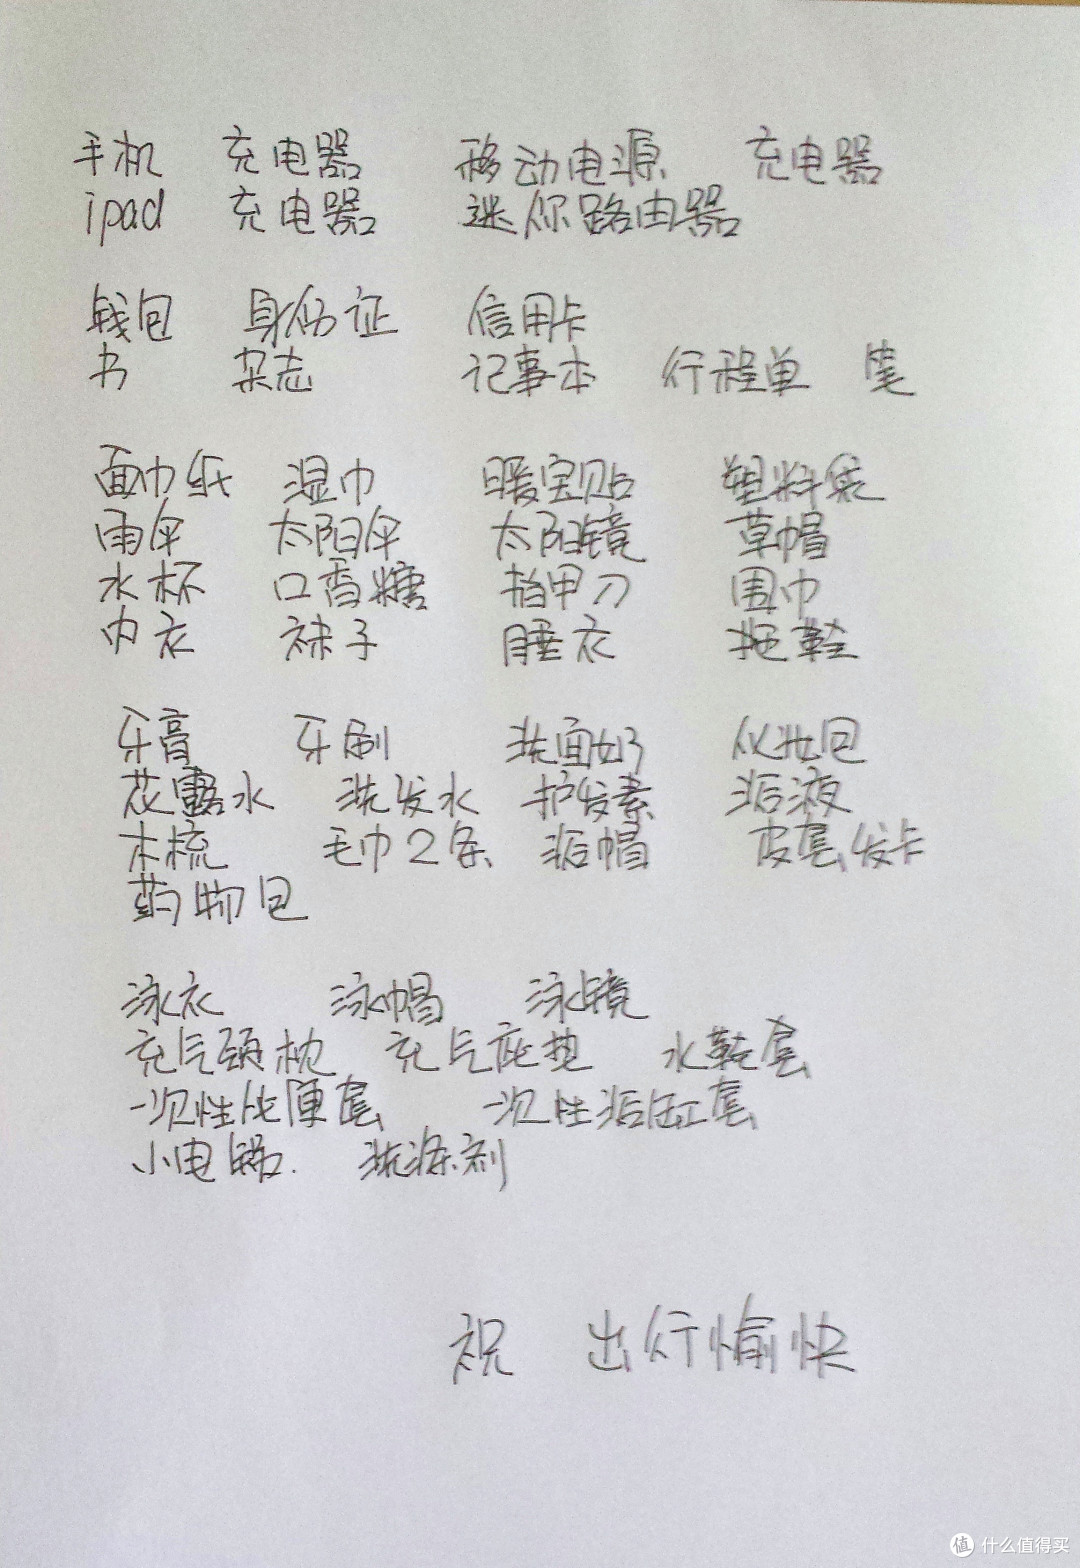 手机 充电器 移动电源 充电器
ipad 充电器 迷你路由器
钱包 身份证 信用卡
书 杂志 记事本 行程单 笔
面巾纸 湿巾 暖宝贴 塑料袋
雨伞 太阳伞 太阳镜 草帽
水杯 口香糖 指甲刀 围巾
内衣 袜子 睡衣 拖鞋
牙膏 牙刷 洗面奶 化妆包
花露水 洗发水 护发素 浴液
木梳 毛巾2条 浴帽 皮套 发卡
药物包
泳衣 泳帽 泳镜
充气颈枕 充气座垫 水鞋套
一次性马桶套 一次性浴缸套
小电锅. 洗涤剂
祝 出行愉快
值 什么值得买